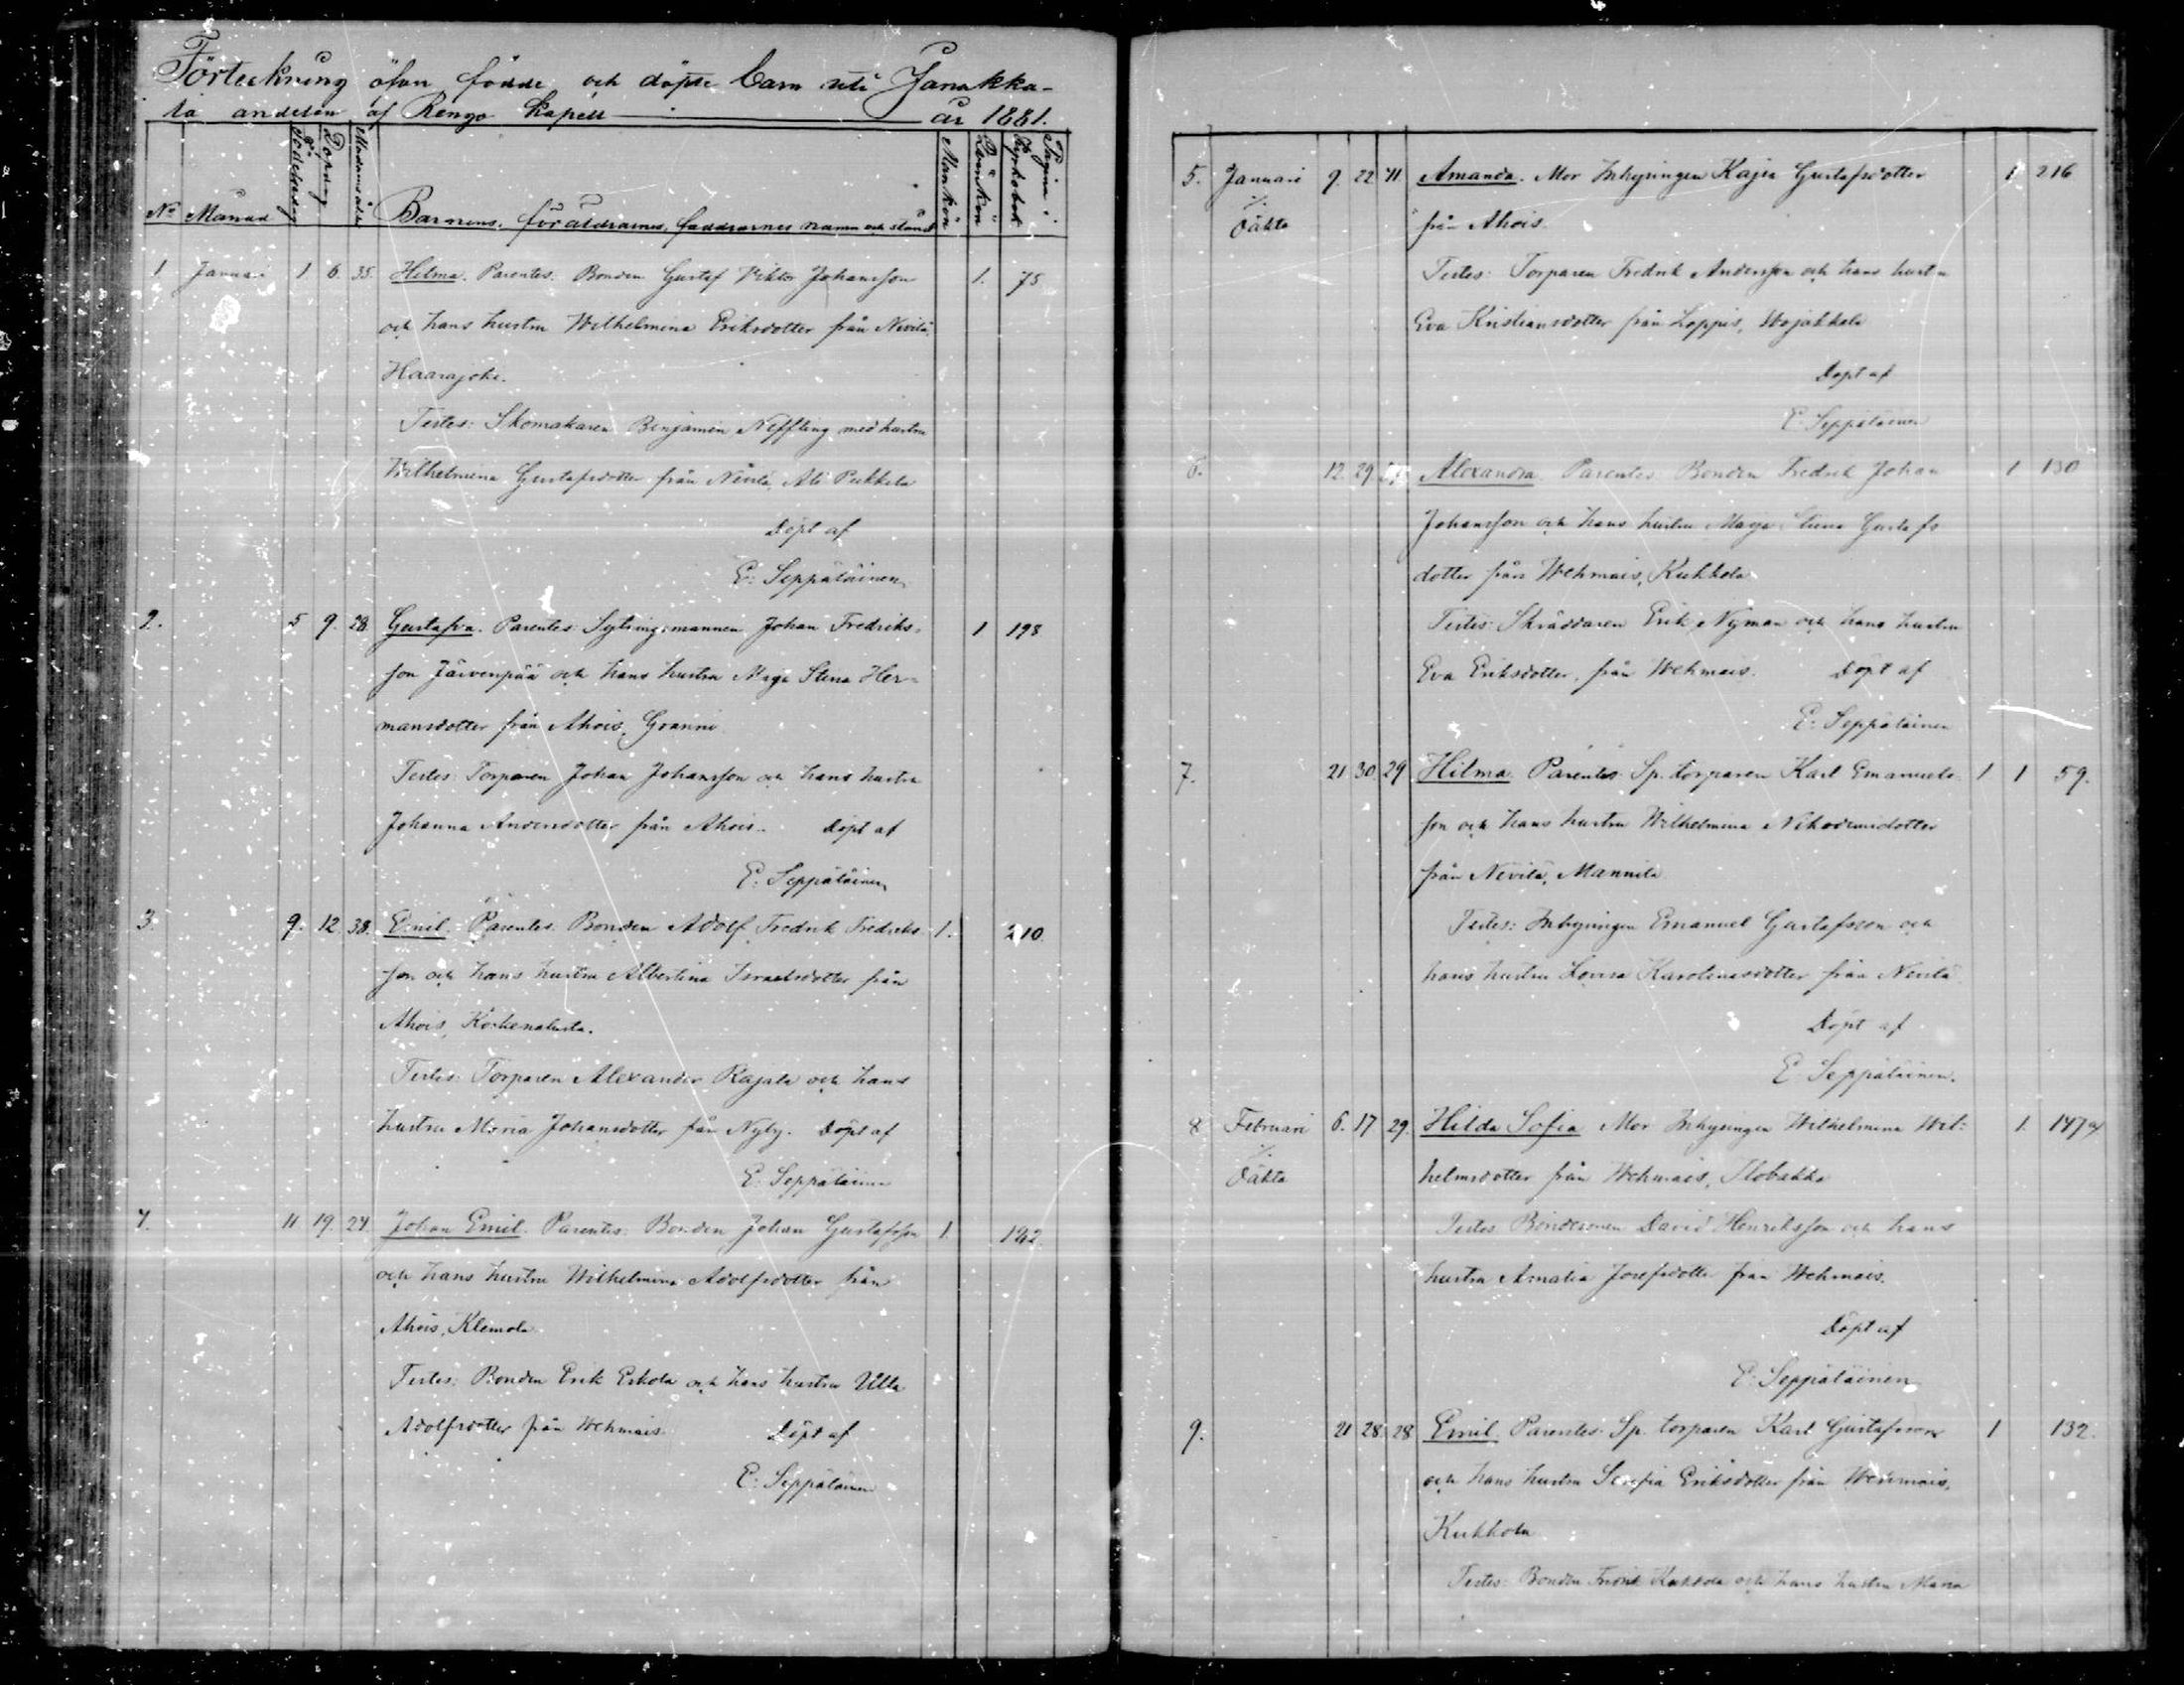 Förteckning öfver födde och döpte barn uti Janakka-
la andelen af Rengo kapell år 1881.
No Månad Födelsedag Döpdag Modrens ålder Barnens, föräldrarnes, faddrarnes namn och stånd Mankön Qvinkön Pagina i Kyrkobok
1 Januari 1 6. 35. Hilma. Parentes. Bonden Gustaf Viktor Johansson 1. 75
och hans hustru Wilhelmina Eriksdotter från Nevilä,
Haarajoki.
Testes: Skomakaren Benjamin Neffling med hustru
Wilhelmina Gustafsdotter från Nevilä, Ali Pekkola
Döpt af
E. Seppäläinen
2. 5 9. 28 Gustafva. Parentes Sytningsmannen Johan Fredriks- 1 198
son Järvenpää och hans hustru Maja Stina Her-
mansdotter från Ahois, Granni
Testes: Torparen Johan Johansson och hans hustru
Johanna Andersdotter från Ahois. Döpt af
E. Seppäläinen
3. 9. 12. 38. Emil. Parentes. Bonden Adolf Fredrik Fredriks- 1. 210.
son och hans hustru Albertina Israelsdotter från
Ahois,
Testes: Torparen Alexander Rajala och hans
hustru Maria Johansdotter från Nyby. Döpt af
E. Seppäläinen
4. 11 19. 24. Johan Emil. Parentes. Bonden Johan Gustafsson 1. 192.
och hans hustru Wilhelmina Adolfsdotter från
Ahois, Klemola
Testes: Bonden Erik Eskola och hans hustru Ulla
Adolfsdotter från Wehmais. Döpt af
E. Seppäläinen
5. Januari 9. 22 41 Amanda. Mor Inhysingen Kajsa Gustafsdotter 1 216
Oäkta från Ahois.
Testes: Torparen Fredrik Andersson och hans hustru
Eva Kristiansdotter från Loppis, Wojakkala
Döpt af
E. Seppäläinen
6. 12. 29. Alexandra. Parentes Bonden Fredrik Johan 1 130
Johansson och hans hustru Maja Stina Gustafs
dotter från Wehmais, Kukkola
Testes: Skräddaren Erik Nyman och hans hustru
Eva Eriksdotter, från Wehmais. Döpt af
E. Seppäläinen
7. 21 30. 29 Hilma. Parentes Sp. torparen Karl Emanuels- 1 1 59.
son och hans hustru Wilhelmina Nikodemidotter
från Nevilä, Mannila
Testes: Inhysingen Emanuel Gustafsson och
hans hustru Lovisa Karolinasdotter från Nevilä
Döpt af
E. Seppäläinen.
8 Februari 6. 17 29. Hilda Sofia Mor Inhysingen Wilhelmina Wil- 1. 147
Oäkta helmsdotter från Wehmais,
Testes Bondesonen David Henriksson och hans
hustru Amalia Josefsdotter från Wehmais.
Döpt af
E. Seppäläinen
9. 21 28. 28 Emil. Parentes Sp. torparen Karl Gustafsson 1 132.
och hans hustru Serafia Eriksdotter från Wehmais,
Kukkola
Testes: Bonden Fredrik Kukkola och hans hustru Maria